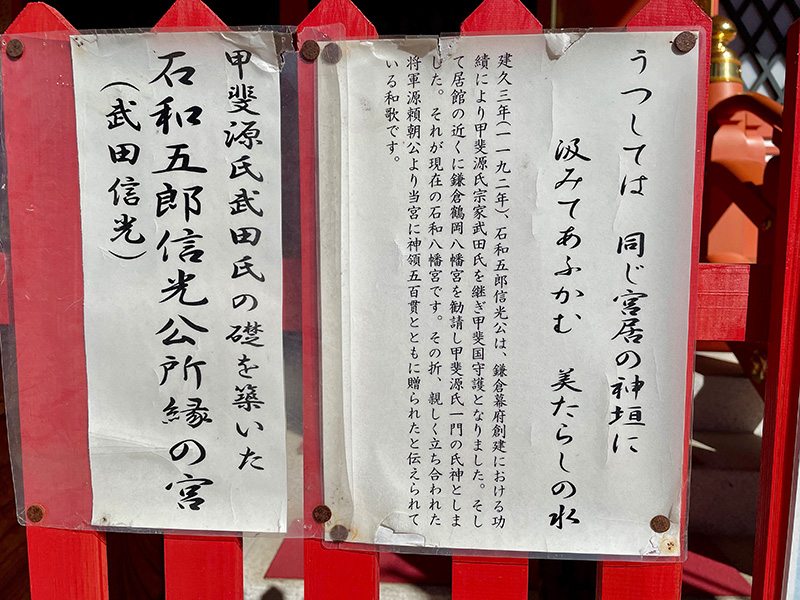 うつしては 同じ宮居の神垣に
汲みてあふかむ 美たらしの水
建久三年(一一九二年)、石和五郎信光公は、鎌倉幕府創建における功
績により甲斐源氏宗家武田氏を継ぎ甲斐国守護となりました。そし
て居館の近くに鎌倉鶴岡八幡宮を勧請し甲斐源氏一門の氏神としま
した。それが現在の石和八幡宮です。その折、親しく立ち合われた
将軍源頼朝公より当宮に神領五百貫とともに贈られたと伝えられて
いる和歌です。
甲斐源氏武田氏の礎を築いた
石和五郎信光公所縁の宮
(武田信光)